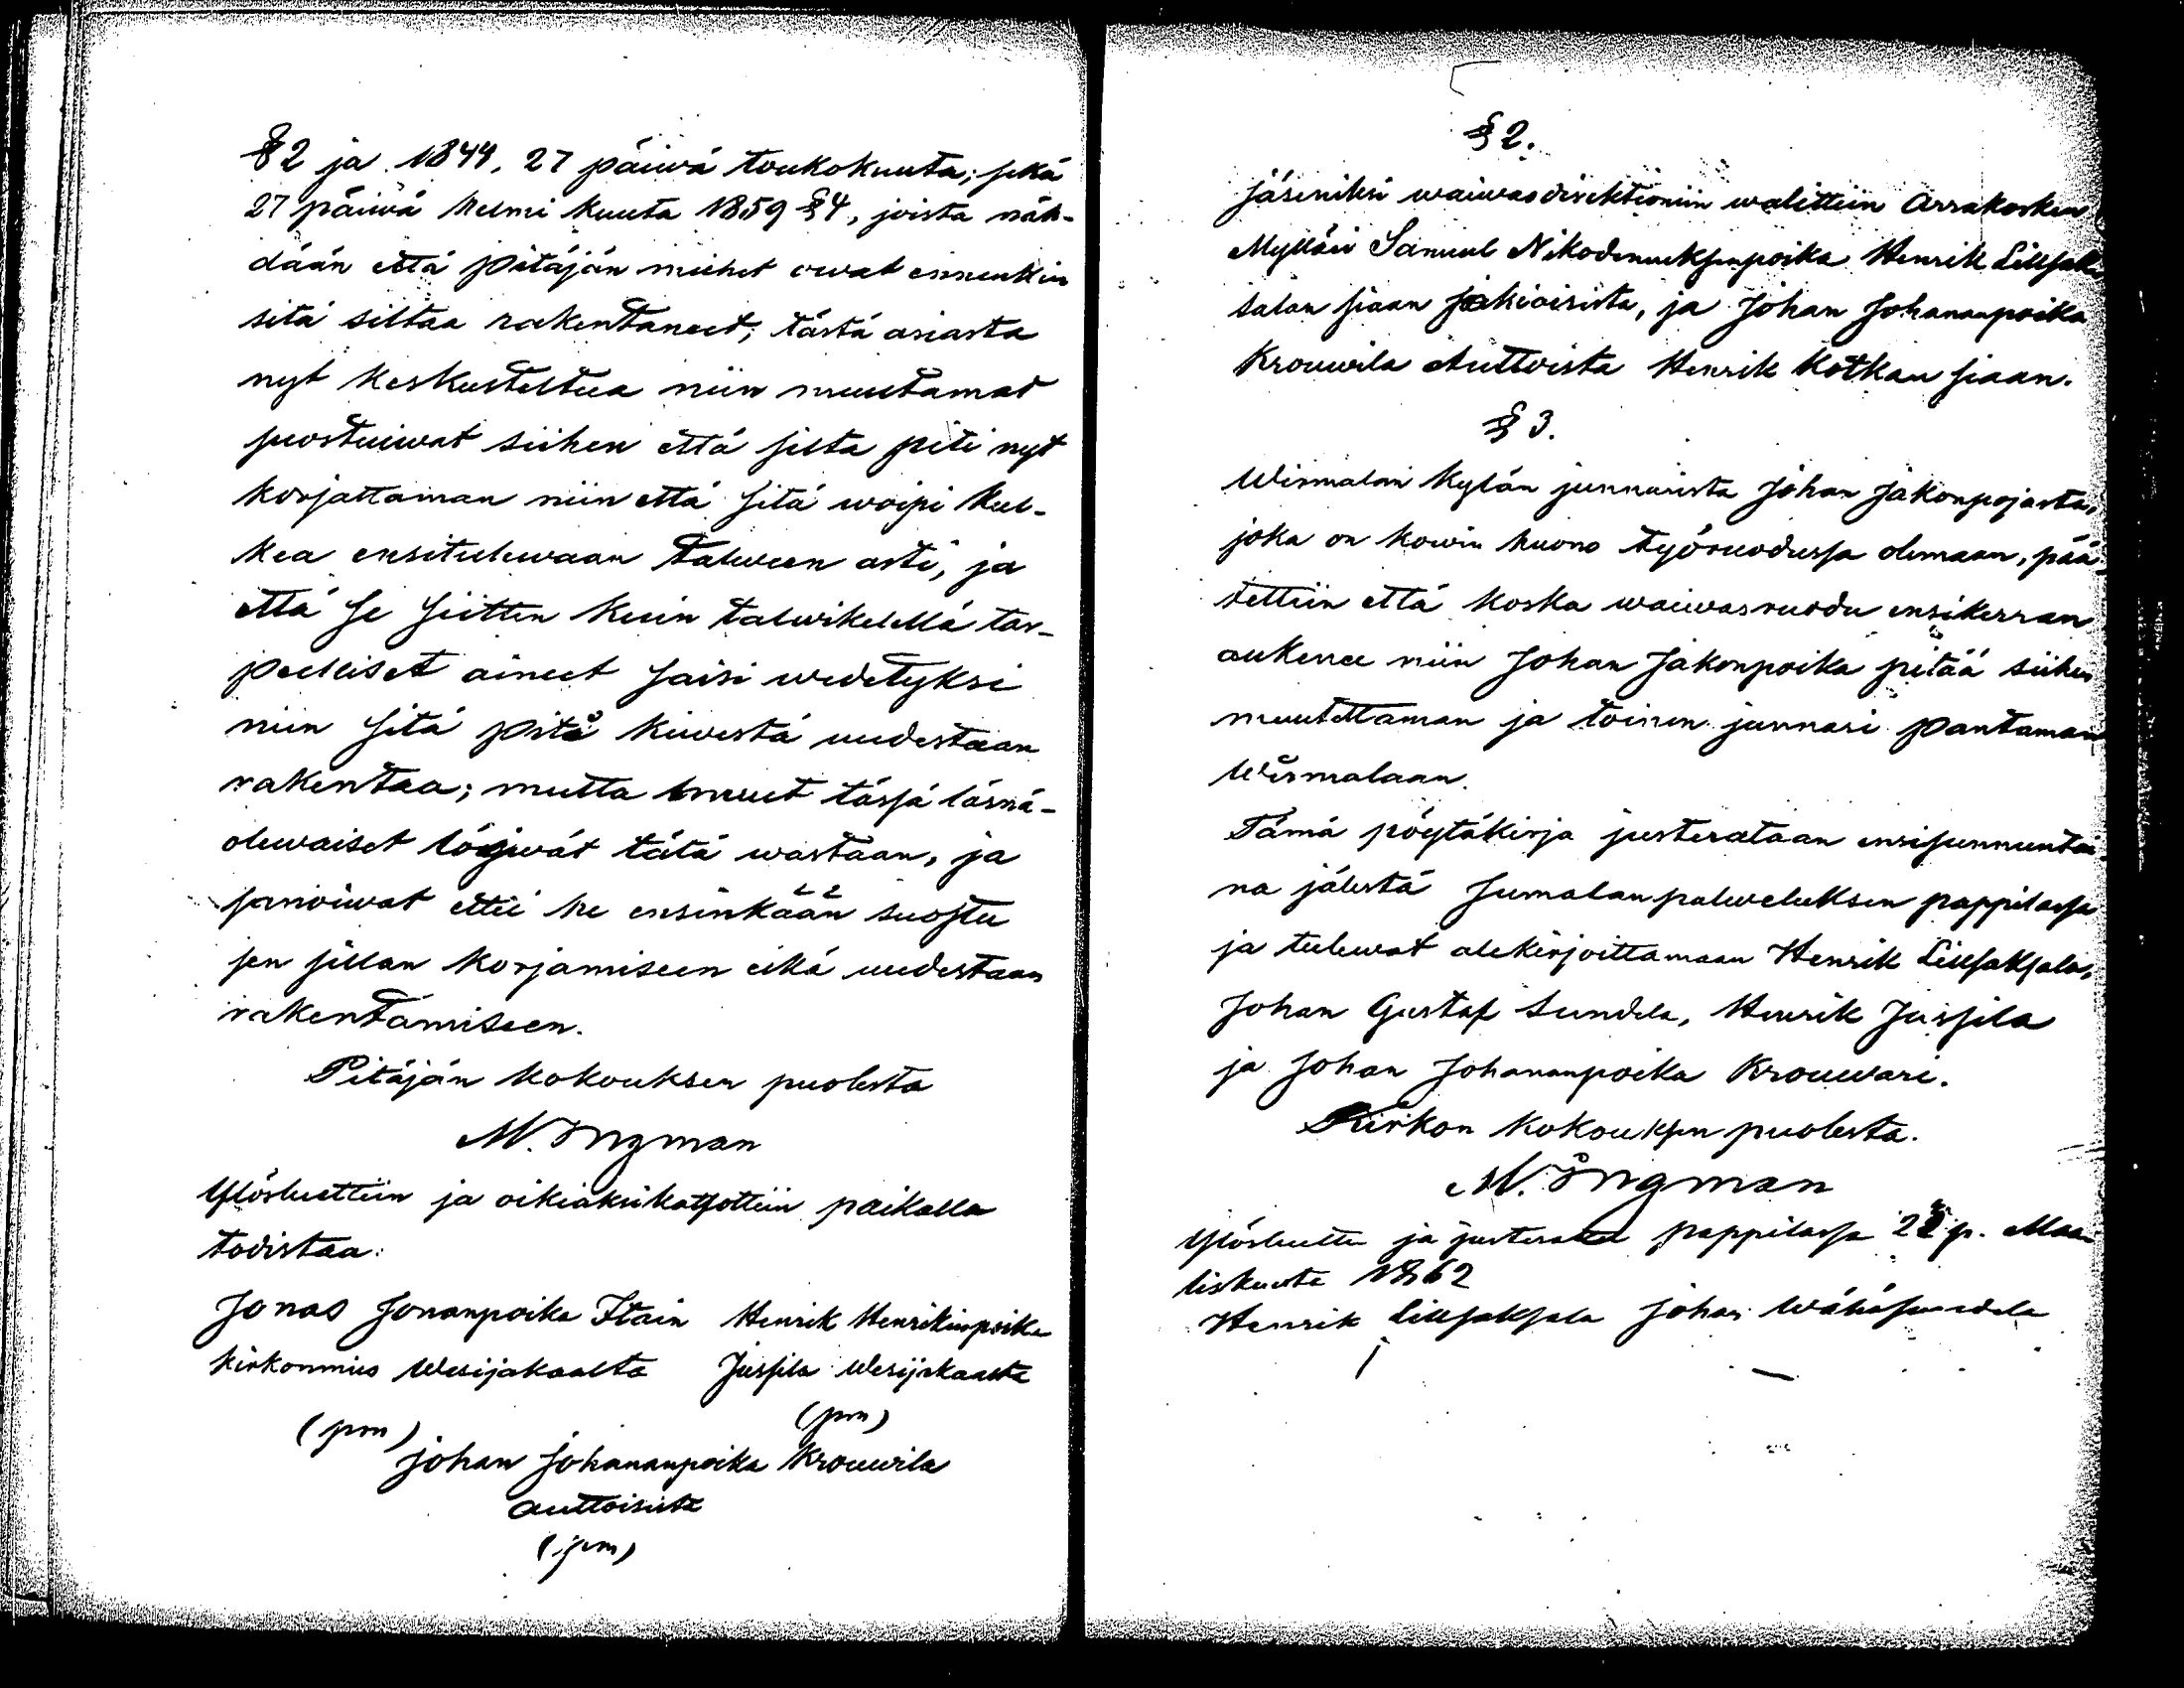 § 2 ja 1844, 27 päiwä toukokuuta; sekä
27 päiwä helmi kuuta 1859 § 4, joista näh-
dään että pitäjän miehet owat ennenkin
sitä siltaa rakentaneet; tästä asiasta
nyt keskusteltua niin muutamat
suostuiwat siihen että silta piti nyt
korjattaman niin että sitä woipi kul-
kea ensitulewaan talween asti, ja
että se siitten kuin talwikelillä tar-
peelliset aineet saisi wedetyksi
niin sitä pitä kiwestä uudestaan
rakentaa; mutta muut tässä läsnä-
olewaiset löijwät tätä wastaan, ja
sanoiwat ettei he ensinkään suostu
sen sillan korjamiseen eikä uudestaan
rakentamiseen.
Pitäjän kokouksen puolesta
M. Ingman
Ylösluettiin ja oikiaksikatsottiin paikalla
todistaa:
Jonas Jonanpoika Itäin Henrik Henrikinpoika
kirkonmies Wesijakoalta Jussila Wesijakaasta
(pm) (pm)
Johan Johananpoika Krouwila
auttoisista
(pm)
§ 2.
Jäseniksi waiwasdirektioniin walittiin Arrakosken
Mylläri Samuel Nikodemuksenpoika Henrik Lillsak
salan siaan Jokioisista, ja Johan Johananpoika
Krouwila Auttoista Henrik Kotkan siaan.
§ 3.
Wirmalan kylän junnarista Johan Jakonpojasta,
joka on kowin huono työruodussa olemaan, pää-
tettiin että koska waiwasruodu ensikerran
aukenee niin Johan Jakonpoika pitää siihen
muutettaman ja toinen junnari pantaman
Wirmalaan.
Tämä pöytäkirja justerataan ensisunnuntai
na jälestä Jumalanpalweluksen pappilassa
ja tulewat alekirjoittamaan Henrik Lillsaksala,
Johan Gustaf Sundela, Henrik Jussila
ja Johan Johananpoika Krouwari.
Kirkon kokouksen puolesta.
M. Ingman
Ylösluettu ja justerattu pappilassa 22 p. Maa
liskuuta 1862
Henrik Lillsaksala Johan Wähäsundela